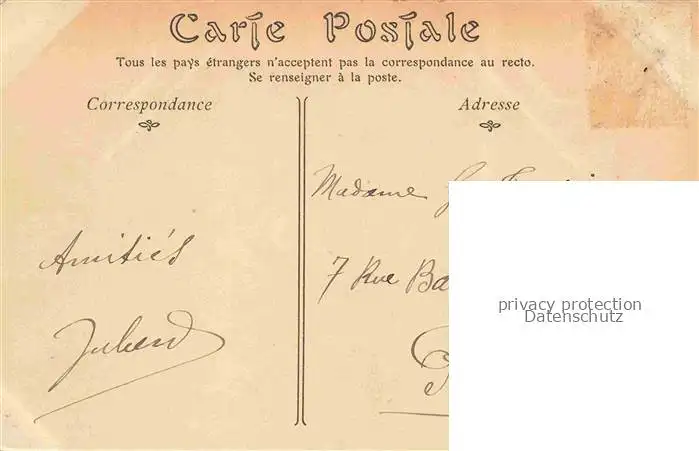 Carte Postale
Tous les pays étrangers n'acceptent pas la correspondance au recto.
Se renseigner à la poste.
Correspondance
Adresse
Madame
Amitiés
7 Rue Ba
privacy protection
Datenschutz